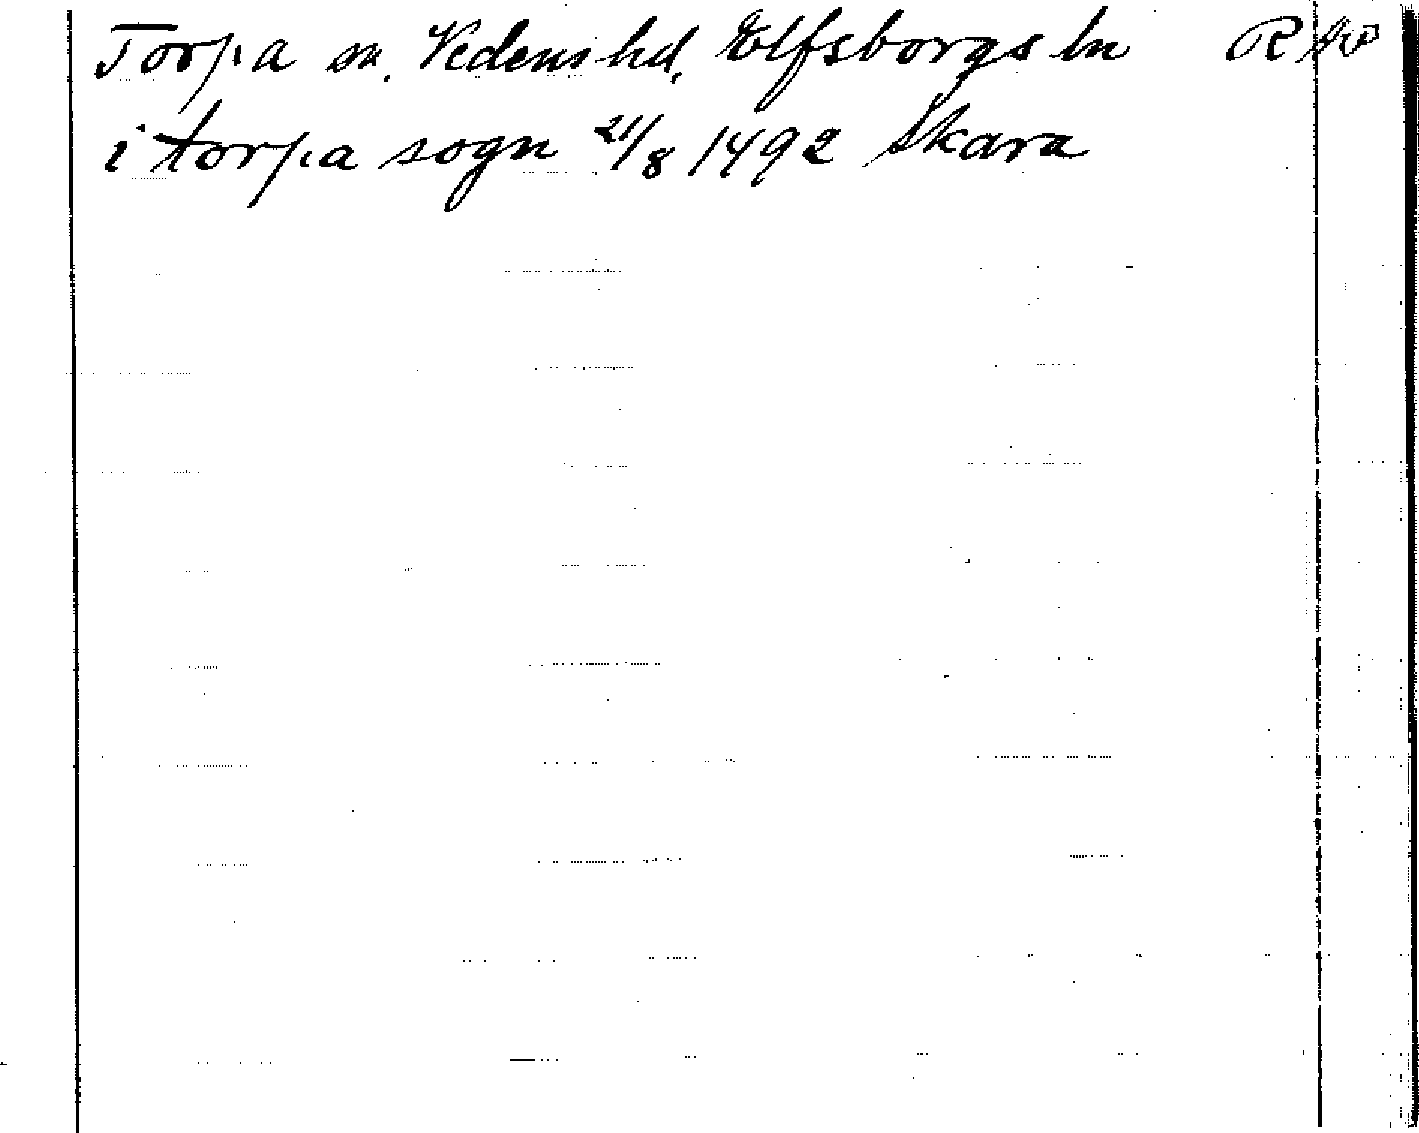 Torpa sn. Vedens hd. Elfsborgs ln R Ap
i torpa sogn 21/8 1492 Skara